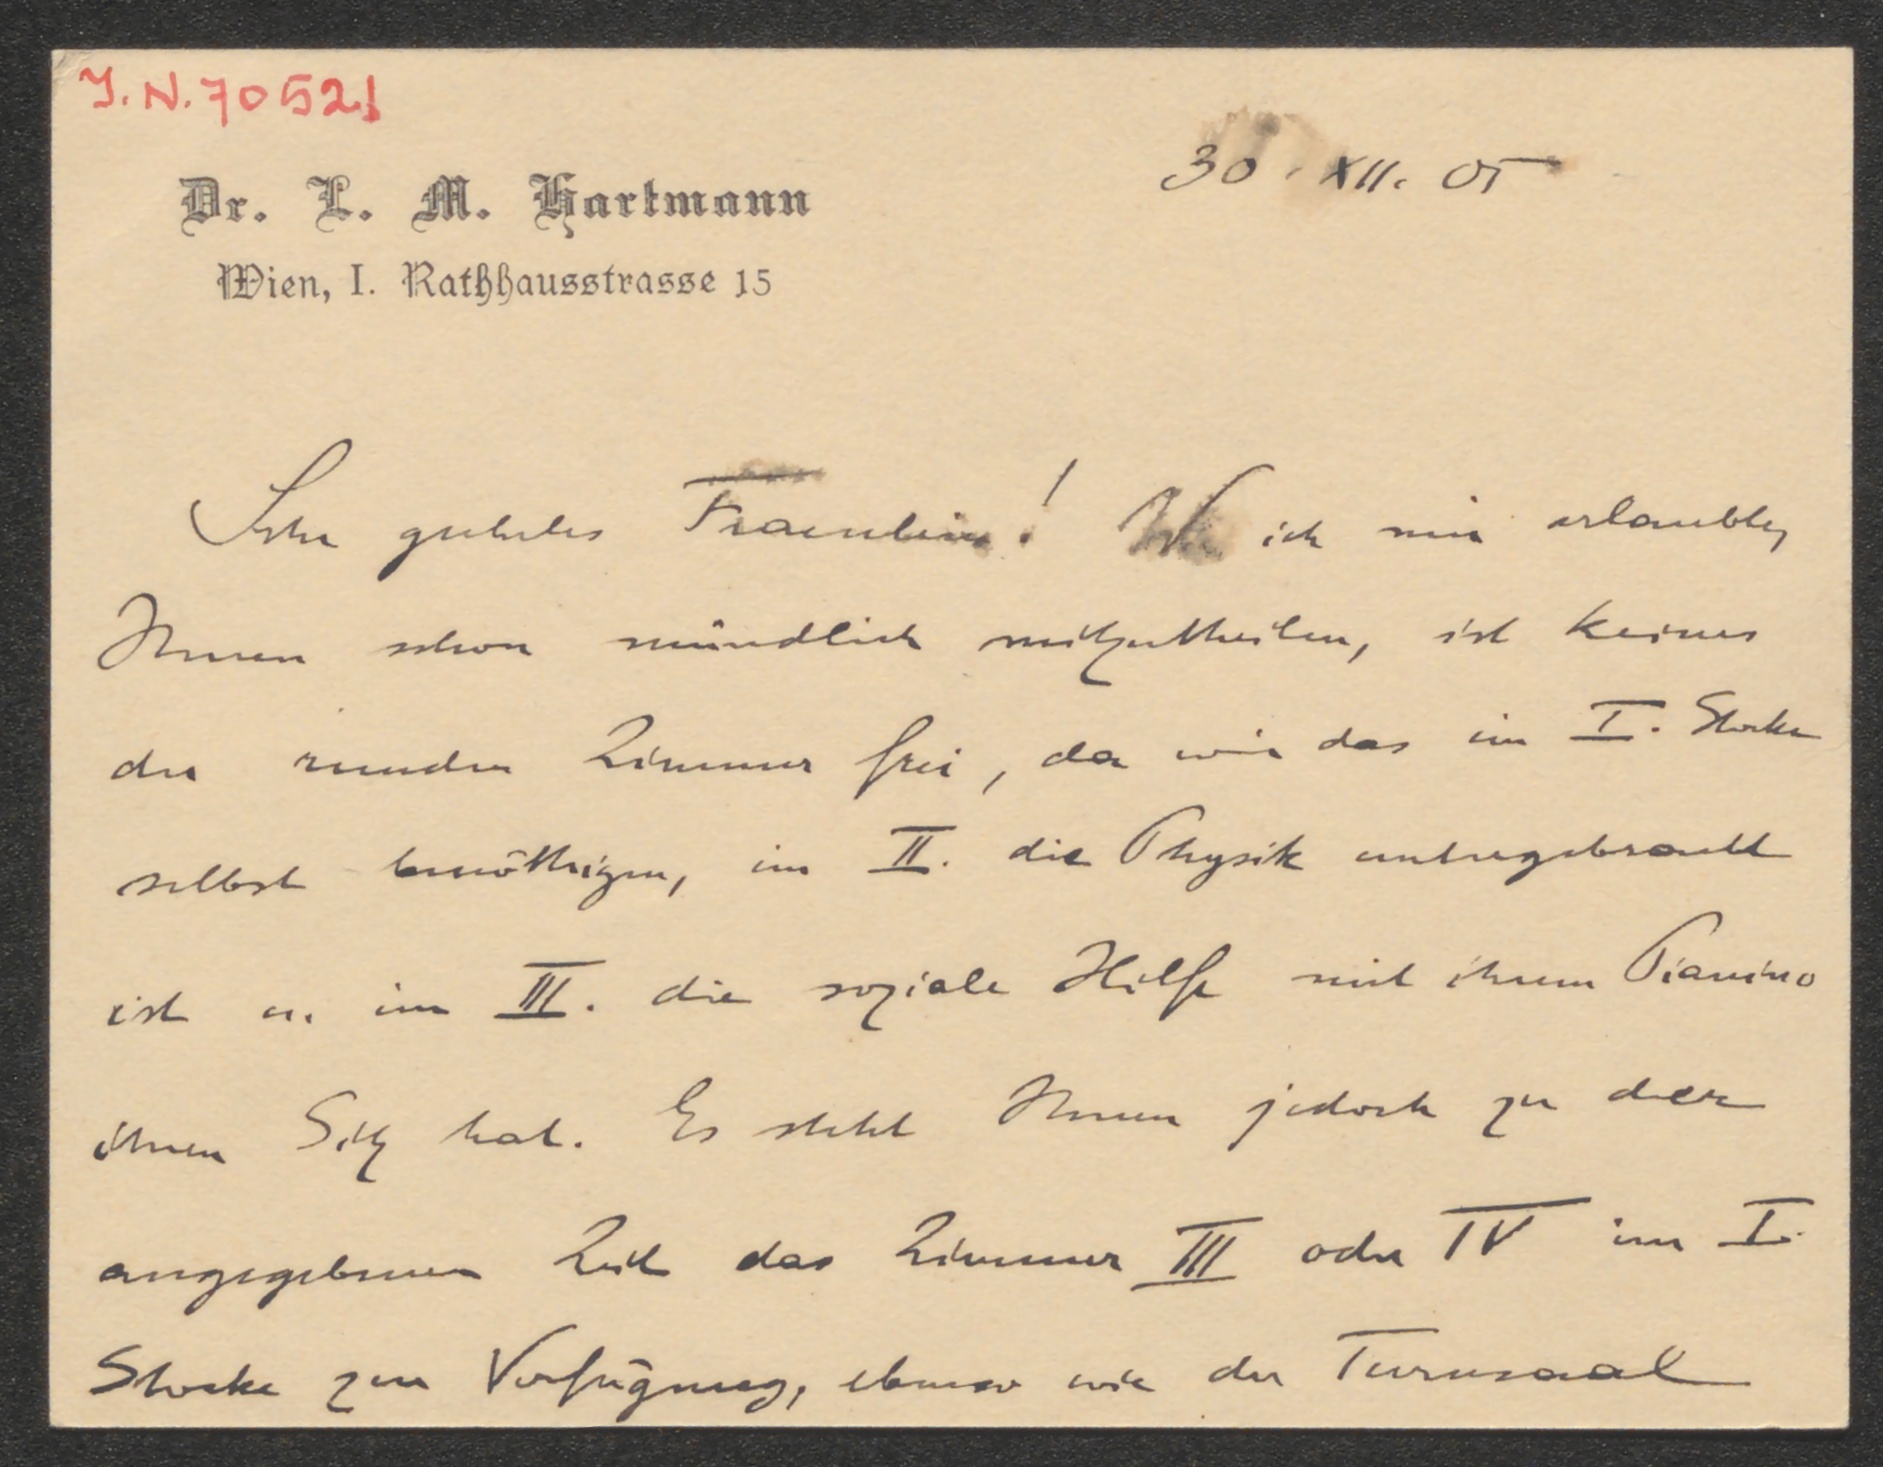 J.N. 70521
30. XII. 05
Dr. L. M. Hartmann
Wien, I. Rathhausstrasse 15
Sehr geehrtes Fraeulein! Wie ich mir erlaubte,
Ihnen schon mündlich mitzutheilen, ist keines
der runden Zimmer frei, da wir das im I. Stocke
selbst benöthigen, im II. die Physik untergebracht
ist u. im III. die soziale Hilfe mit ihrem Pianino
ihren Sitz hat. Es steht Ihnen jedoch zu der
angegebenen Zeit das Zimmer III oder IV im I.
Stocke zur Verfügung, ebenso wie der Turnsaal